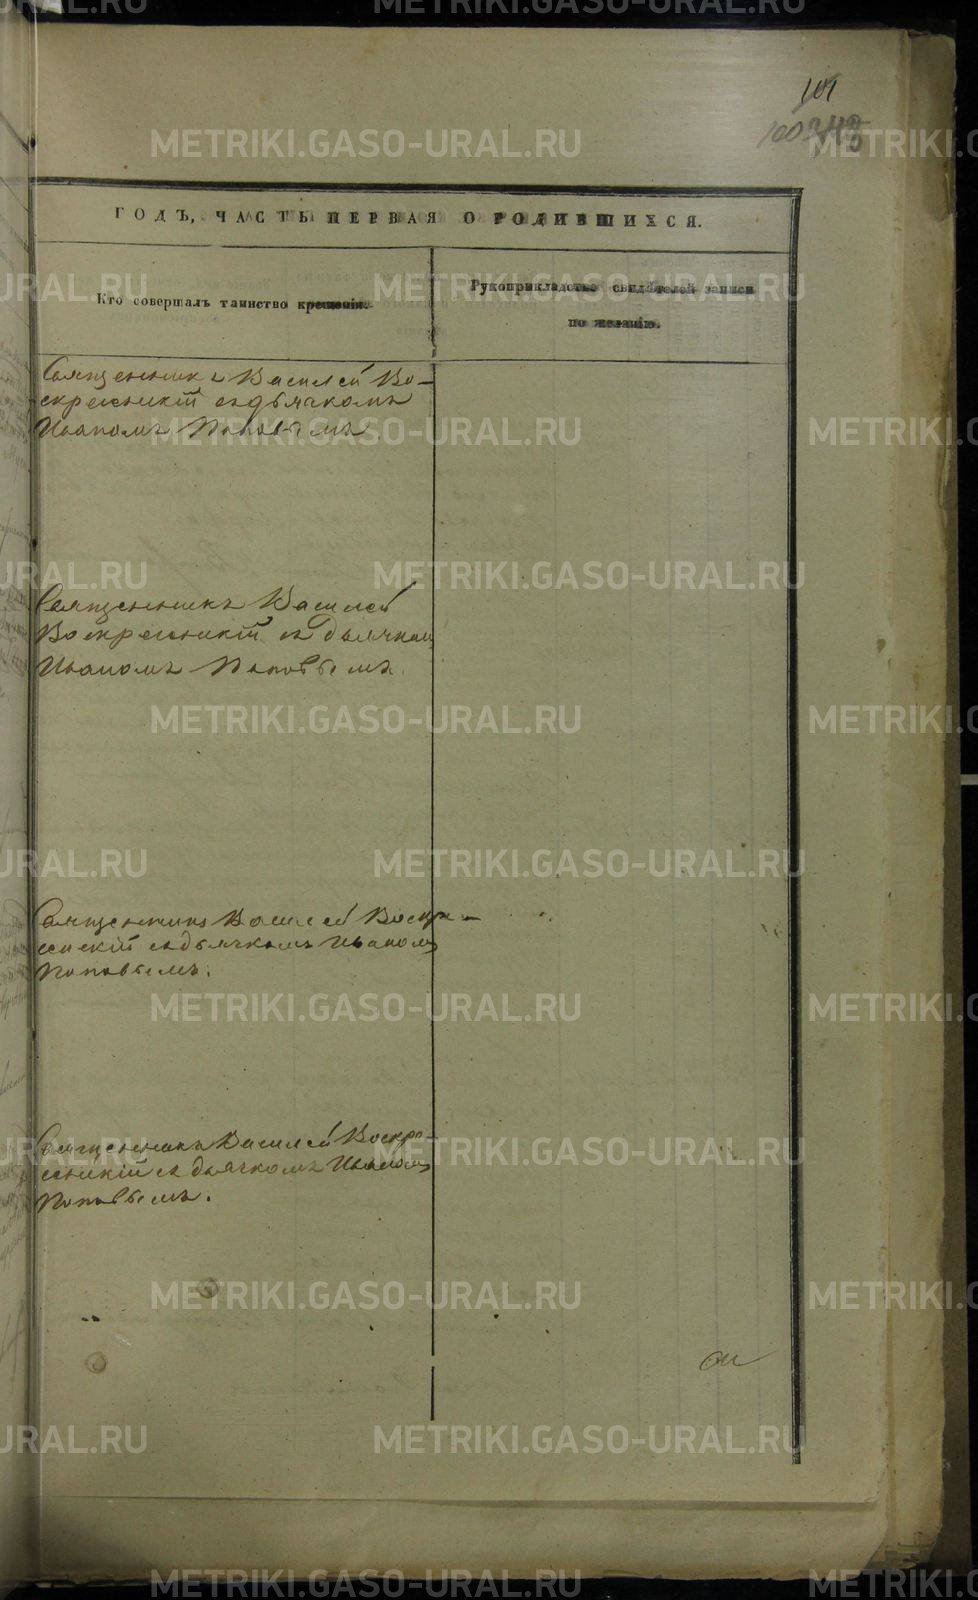 101
ГОДЪ, ЧАСТЬ ПЕРВАЯ О РОДИВШИХСЯ.
Кто совершалъ таинство крещенія.
Рукоприкладство свидѣтелей записи
по желанію.
Священникъ Василей Во-
скресенскій съ дьячкомъ
Иваномъ Поповымъ
Священникъ Василей
Воскресенскій съ дьячкомъ
Иваномъ Поповымъ.
Священникъ Василей Воскре-
сенскій съ дьячкомъ Иваномъ
Поповымъ.
Священникъ Василей Воскре-
сенскій съ дьячкомъ Иваномъ
Поповымъ.
METRIKI.GASO-URAL.RU